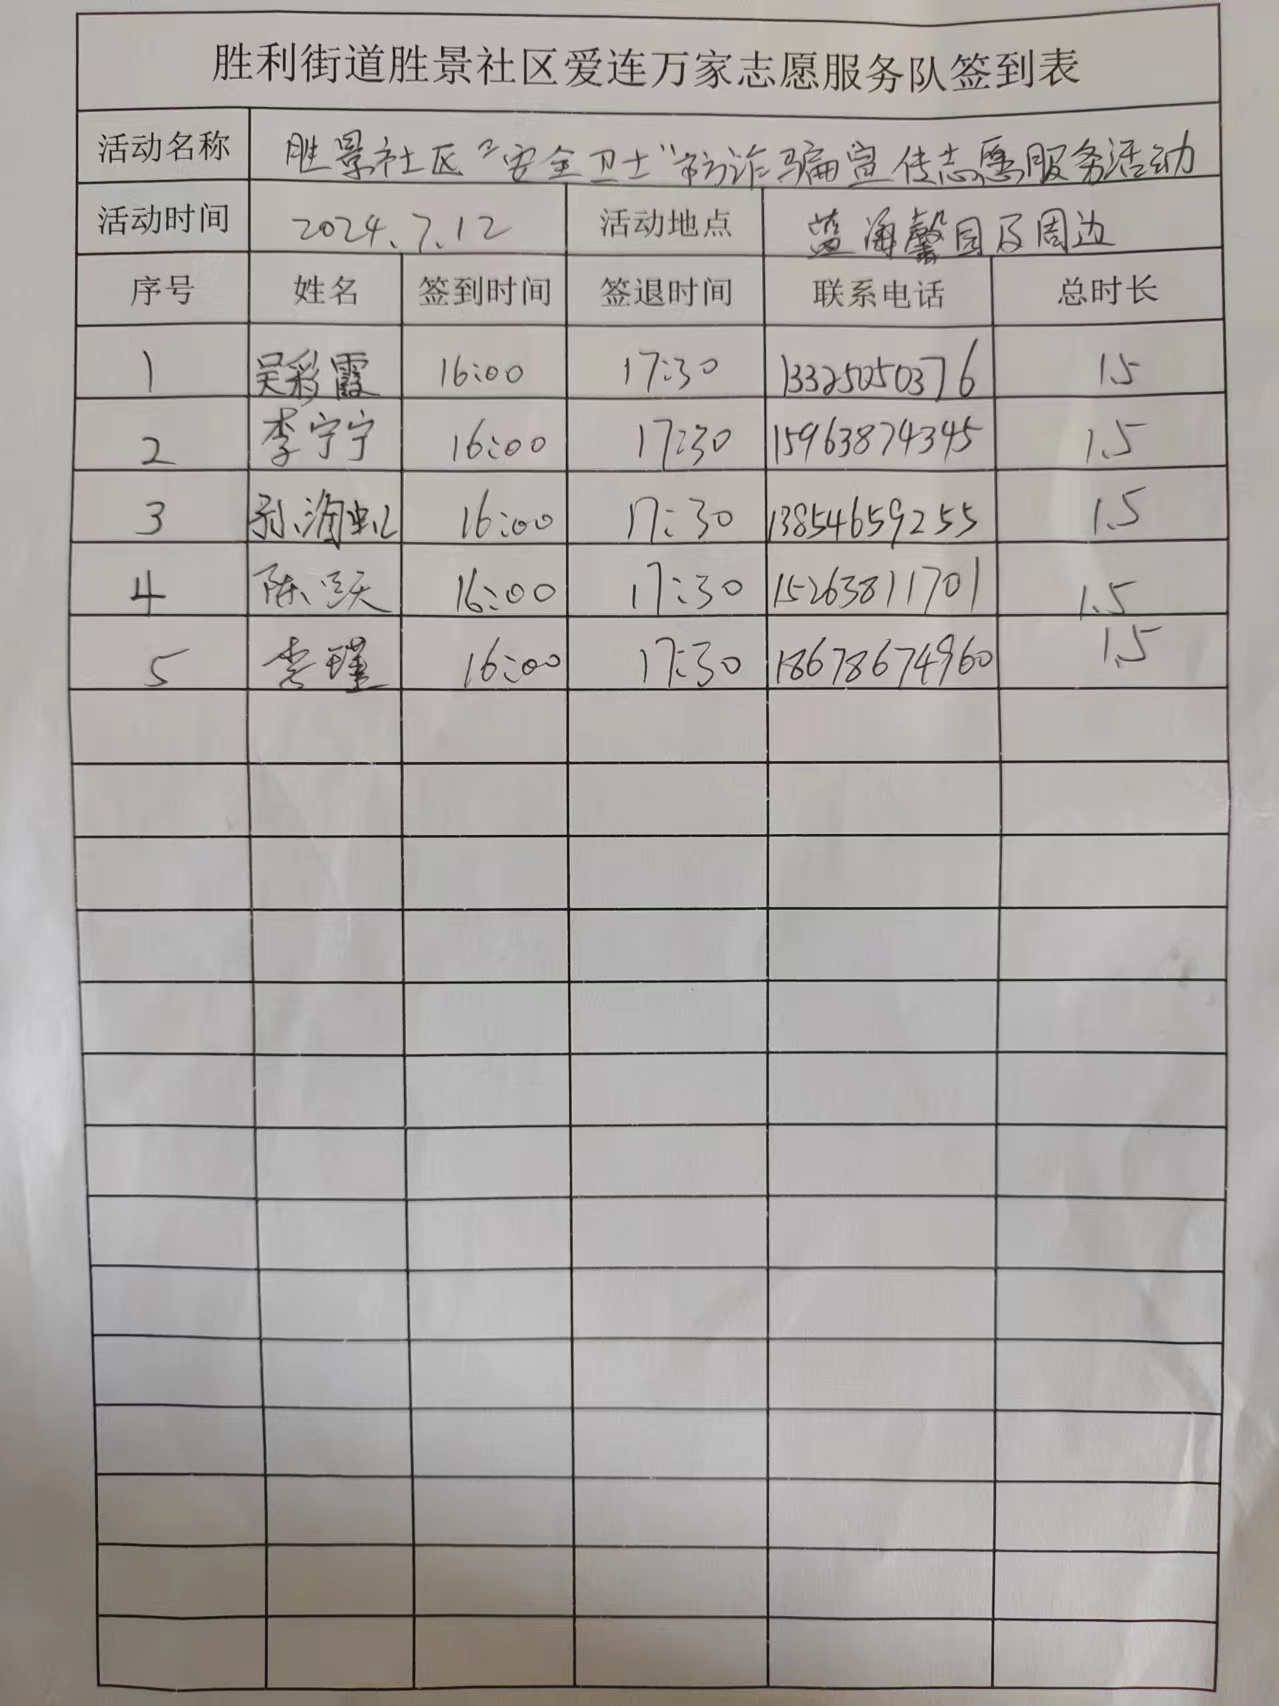 胜利街道胜景社区爱连万家志愿服务队签到表
活动名称 胜景社区“安全卫士”防诈骗宣传志愿服务活动
活动时间 2024.7.12 活动地点 蓝海馨园及周边
序号 姓名 签到时间 签退时间 联系电话 总时长
1 吴彩霞 16:00 17:30 13325050376 1.5
2 李宁宁 16:00 17:30 15963874345 1.5
3 孙海虹 16:00 17:30 13854659255 1.5
4 陈 16:00 17:30 15263811701 1.5
5 李瑾 16:00 17:30 18678674960 1.5